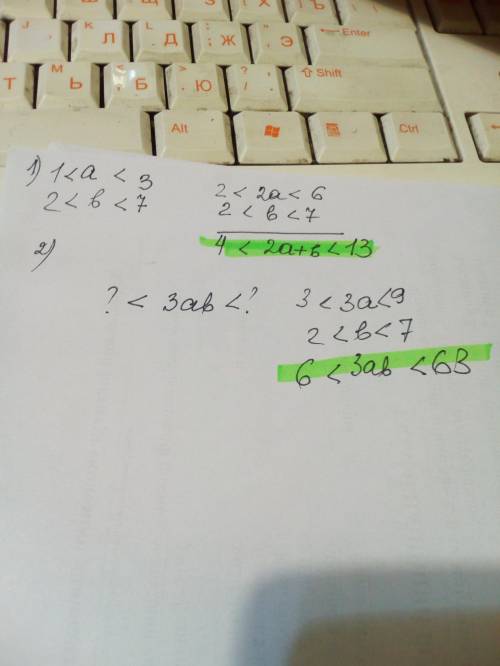 Л Д Ж Э Enter
Т Ь Б Ю Shift
Alt Ctrl
1) 1 < a < 3
2 < в < 7
2 < 2a < 6
2 < в < 7
4 < 2a+в < 13
2)
? < 3aв < ?
3 < 3a < 9
2 < в < 7
6 < 3aв < 63